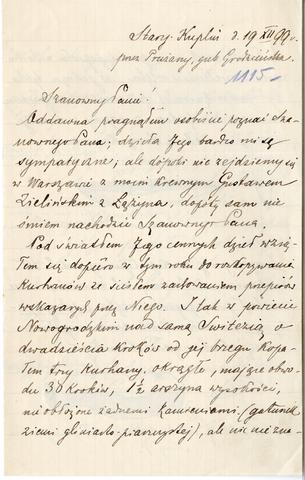 Stary-Kuplin d. 19 XII 99 r.
przez Prużany, gub Grodzieńska
1115
Szanowny Panie!
Oddawna pragnąłem osobiście poznać Sza-
nownego Pana; dzieła Jego bardzo mi są
sympatyczne; ale dopóki nie zejdziemy się
w Warszawie z moim krewnym Gustawem
Zielińskim z Łążyna, dopóty sam nie
śmiem nachodzić Szanownego Pana.
Pod światłem Jego cennych dzieł wzią-
łem się dopiero w tym roku do rozkopywania
Kurhanów ze ścisłem zastosowaniem przepisów
wskazanych przez Niego. I tak w powiecie
Nowogródzkim nad samą Świtezią o
dwadzieścia kroków od jej brzegu kopa-
łem trzy Kurhany, okrągłe, mające obwo-
du 30 kroków, 1½ arszyna wysokości,
nie obłożone żadnemi kamieniami (gatunek
ziemi gliniasto-piaszczystej), ale nie zna-